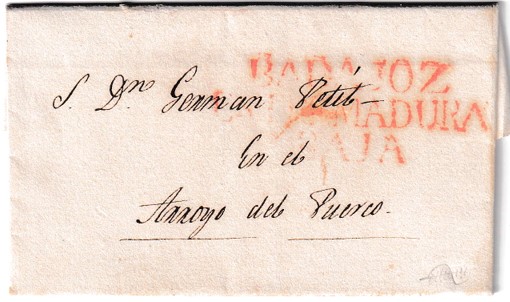 BADAJOZ
S. Dⁿ German Petit
EXTREMADURA
BAJA
En el
Arroyo del Puerco.